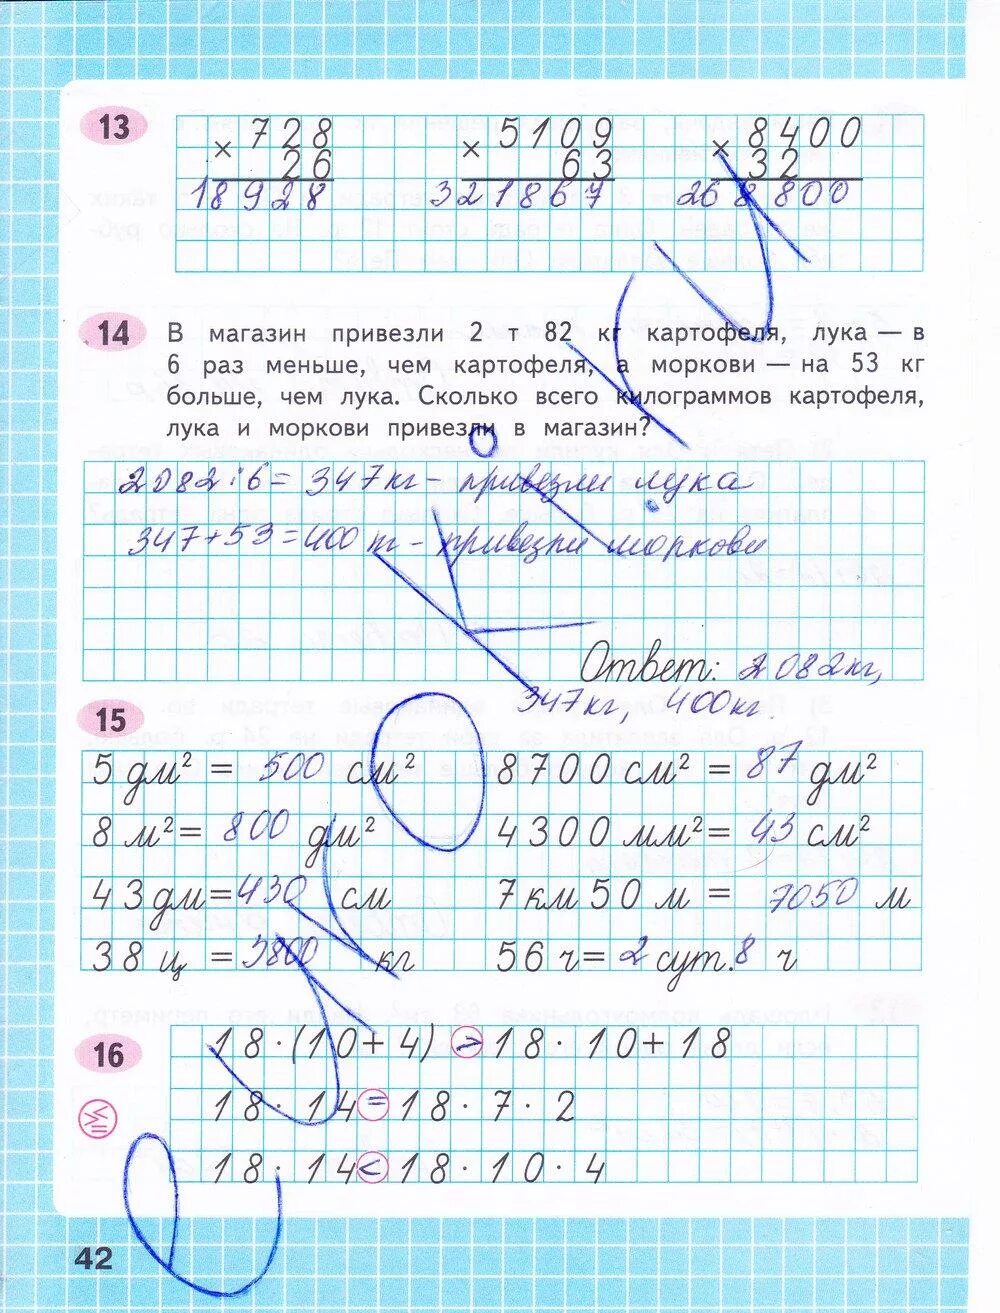 13
× 728 × 5109 × 8400
26 63 32
18928 321867 268800
14
В магазин привезли 2 т 82 кг картофеля, лука — в
6 раз меньше, чем картофеля, а моркови — на 53 кг
больше, чем лука. Сколько всего килограммов картофеля,
лука и моркови привезли в магазин?
2082:6 = 347 кг - привезли лука
347+53=400 т - привезли моркови
Ответ: 2082кг,
347кг, 400кг.
15
5 дм² = 500 см² 8700 см² = 87 дм²
8 м² = 800 дм² 4300 мм² = 43 см²
43 дм = 430 см 7 км 50 м = 7050 м
38 ц = 3800 кг 56 ч = 2 сут. 8 ч
16
18 · (10 + 4) > 18 · 10 + 18
18 · 14 = 18 · 7 · 2
18 · 14 < 18 · 10 · 4
42